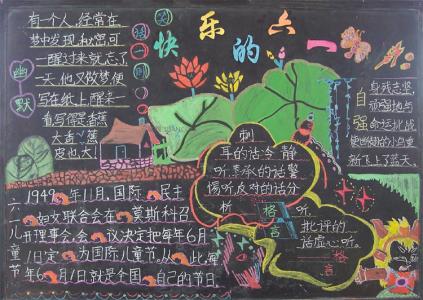 快乐的六一
幽默
有一个人,经常在
梦中发现秘密,可
一醒过来就忘了
一天,他又做梦便
写在纸上,醒来一
看写得是香蕉
大香蕉
皮也大!
自强
身残志坚
顽强地与
命运挑战
重新飞上了蓝天。
刺
耳的话冷静
听,奉承的话警
惕听,反对的话分
析听,
批评的
话虚心听。
格言
格言
六一儿童节
1949年11月,国际民主
妇女联合会在莫斯科召
开理事会,会议决定把每年6月
1日定为国际儿童节,从此,每
年6月1日就是全国自己的节日。